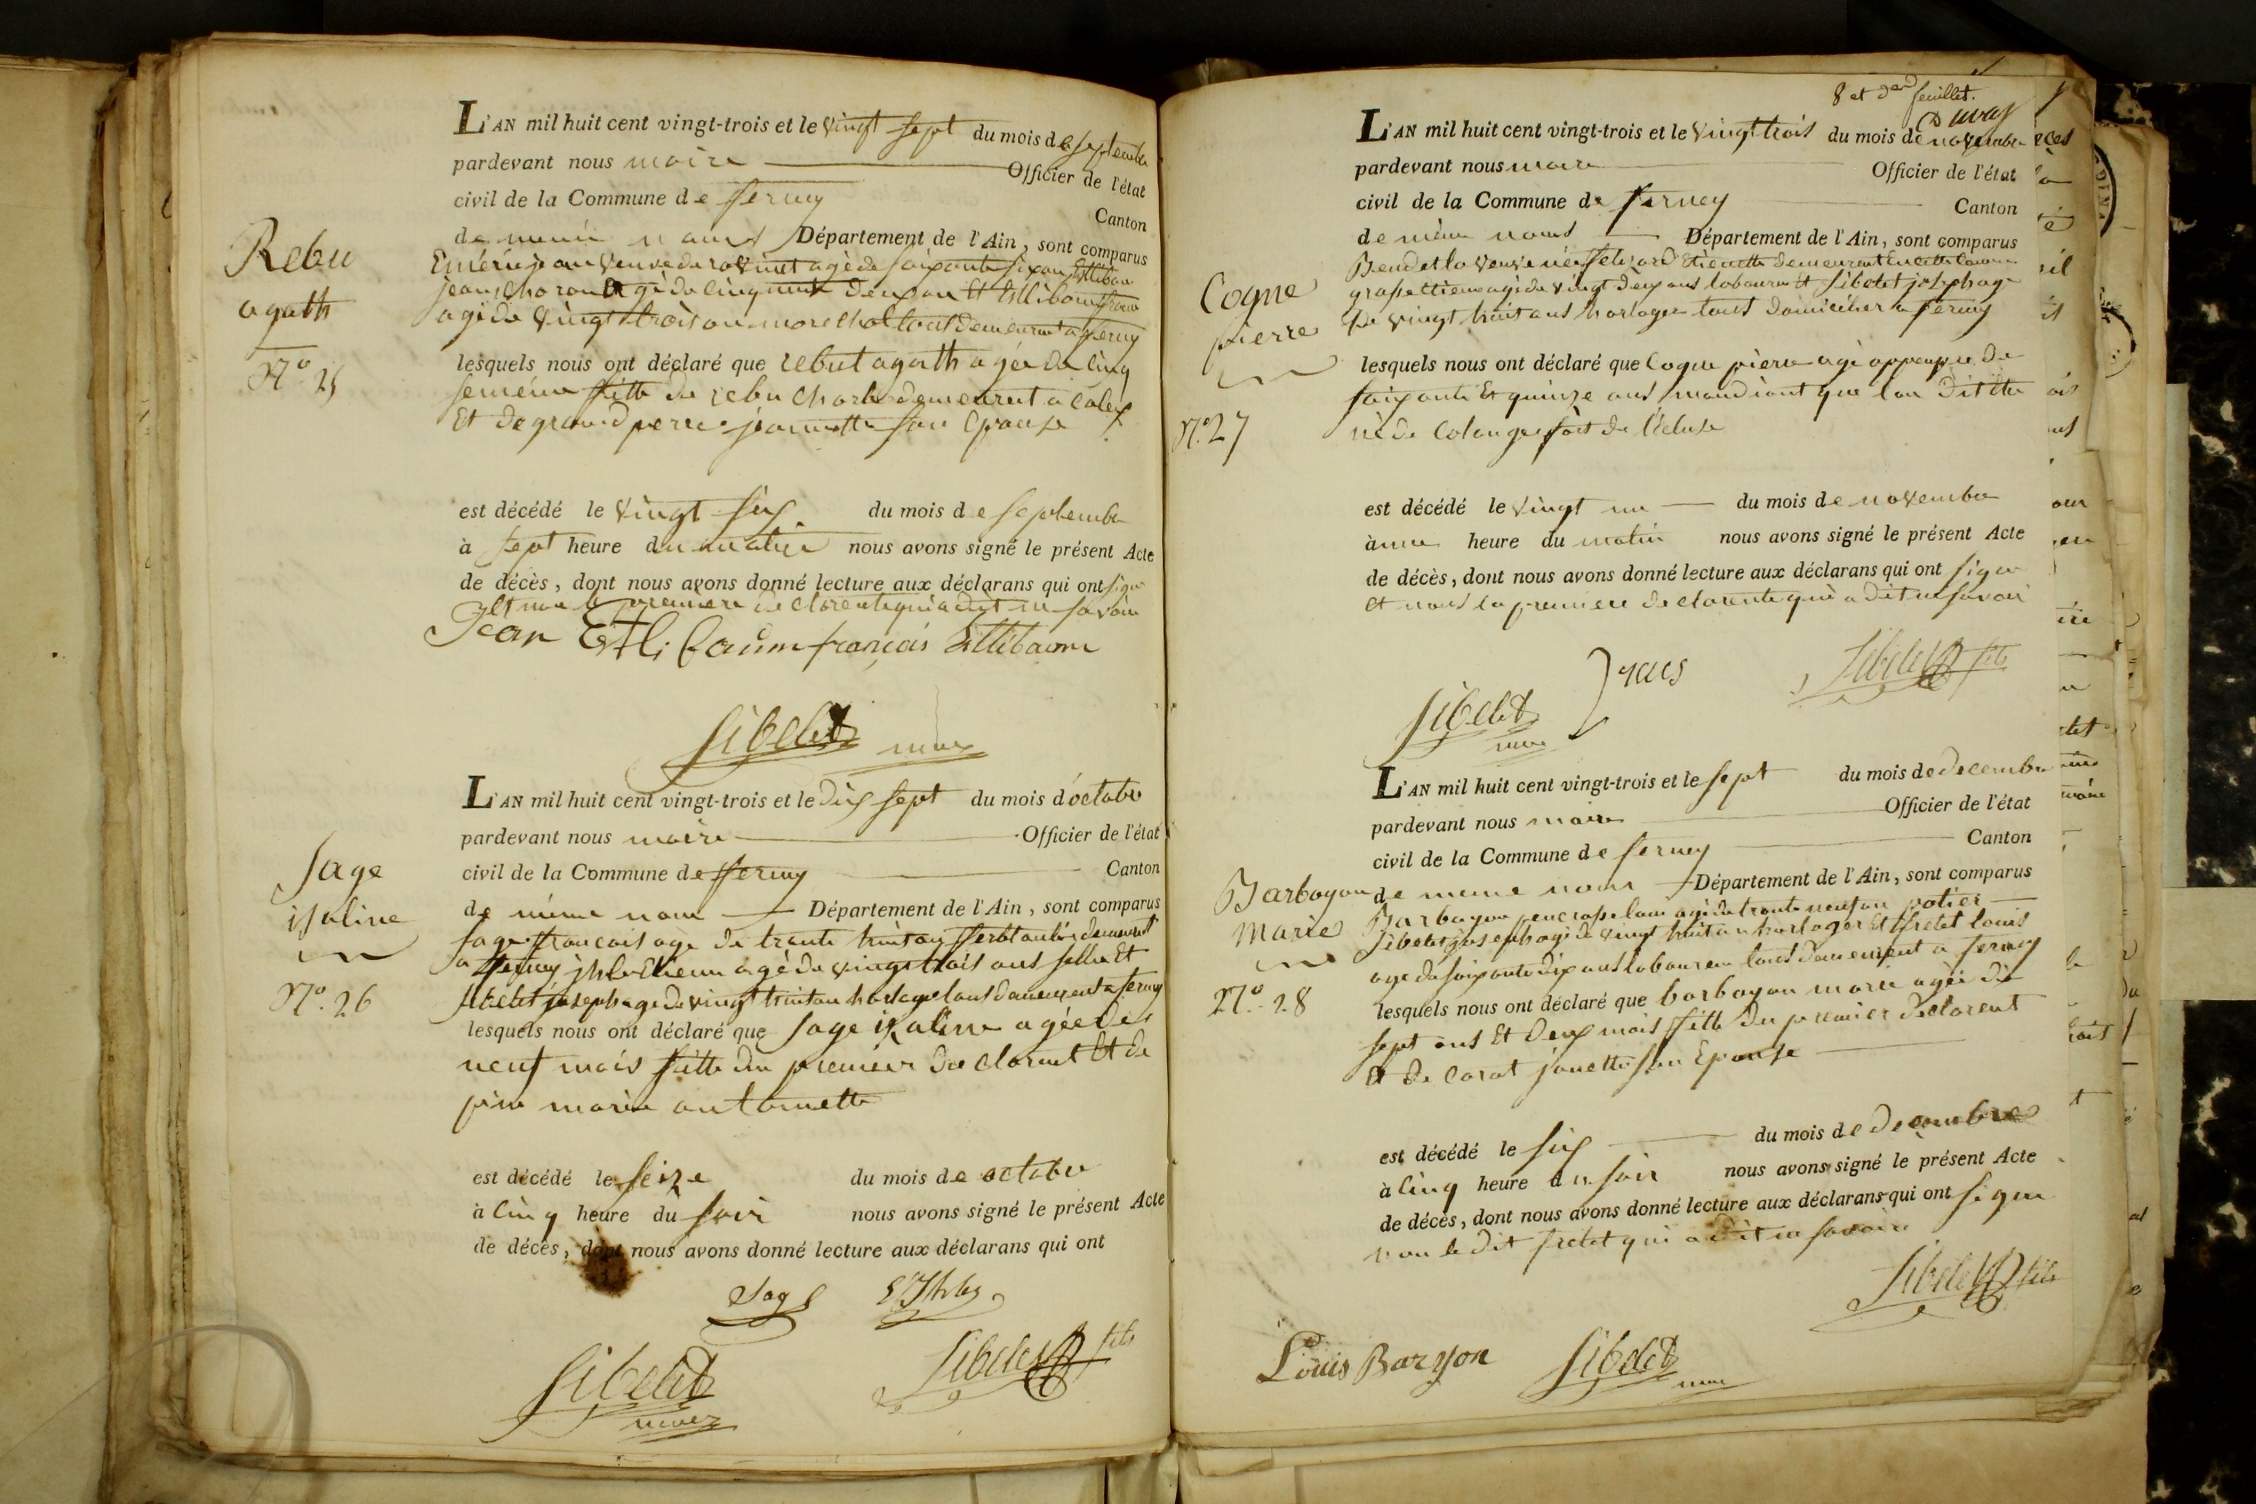 L'AN mil huit cent vingt-trois et le vingt sept du mois de septembre
pardevant nous maire Officier de l'état
civil de la Commune de ferney Canton
de même nom Département de l'Ain, sont comparus
Rebu
agath
N.º 25
agé de vingt trois an marechal tous demeurant a ferney
lesquels nous ont déclaré que rebut agath agée de cinq
semeine fille de rebu Charle demeurent a Colex
Et de grandperre jeannette son Epouse
est décédé le vingt six du mois de septembre
à sept heure du matin nous avons signé le présent Acte
de décès, dont nous avons donné lecture aux déclarans qui ont signé
Et non la premiere declarente qui a dit ne savoir
Jean Ettlibaum françois Ettlibaum
Sibelet maire
L'AN mil huit cent vingt-trois et le dix sept du mois d'octobre
pardevant nous maire Officier de l'état
civil de la Commune de ferney Canton
de même nom Département de l'Ain, sont comparus
Sage
isaline
N.º 26
Sage francois age de trente huit an ferblantier demeurent
a ferney Etienne agé de vingt trois ans sellier Et
Sibelet joseph agé de vingt huit an horloger tous demeurent a ferney
lesquels nous ont déclaré que Sage izaline agée de
neuf mois fille du premier declarent Et de
marie antoinette
est décédé le seize du mois de octobre
à cinq heure du soir nous avons signé le présent Acte
de décès, dont nous avons donné lecture aux déclarans qui ont
Sage
Sibelet fils
Sibelet maire
8 et der feuillet.
L'AN mil huit cent vingt-trois et le vingt trois du mois de novembre
pardevant nous maire Officier de l'état
civil de la Commune de ferney Canton
de même nom Département de l'Ain, sont comparus
Cogne
pierre
N.º 27
agé de vingt deux ans laboureur Et Sibelet joseph age
de vingt huit ans horloger tous domicilier a ferney
lesquels nous ont déclaré que Cogne pierre agé appeupre de
soixante Et quinze ans mandiant que lon dit etre
né de Colonge fort de l'écluse
est décédé le vingt un du mois de novembre
à une heure du matin nous avons signé le présent Acte
de décès, dont nous avons donné lecture aux déclarans qui ont signé
et non la premiere declarente qui a dit ne savoir
Sibelet fils
Sibelet maire
L'AN mil huit cent vingt-trois et le sept du mois de decembre
pardevant nous maire Officier de l'état
civil de la Commune de ferney Canton
de meme nom Département de l'Ain, sont comparus
Barboyon
Marie
N.º 28
Barboyon louis agé de trente neuf an potier
Sibelet joseph agé de vingt huit an horloger Et fretet louis
age de soixante dix ans laboureur tous demeurent a ferney
lesquels nous ont déclaré que barboyon marie agée de
sept ans Et deux mois fille du premier declarent
Et de Corat janette son Epouse
est décédé le six du mois de decembre
à cinq heure du soir nous avons signé le présent Acte
de décès, dont nous avons donné lecture aux déclarans qui ont signé
non le dit fretet qui a dit ne savoir
Sibelet fils
Louis Baryon Sibelet maire